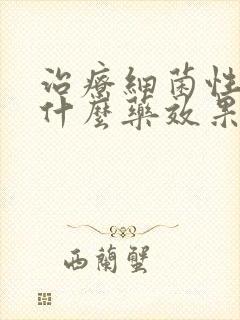 治療細菌性
什麼藥效果
西蘭蟹